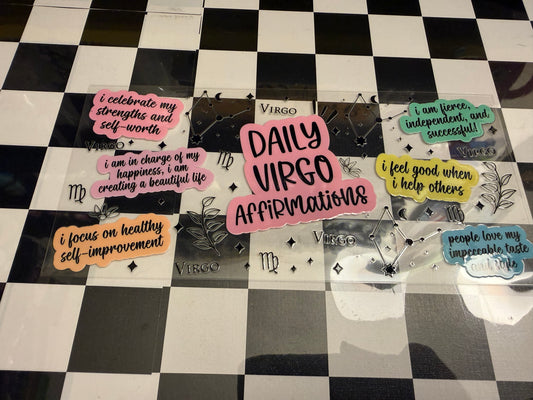 i celebrate my
strengths and
self-worth
VIRGO
DAILY
VIRGO
AFFIRMATIONS
i am fierce,
independent, and
successful!
VIRGO
VIRGO
i am in charge of my
happiness, i am
creating a beautiful life
i feel good, when
i help others
i focus on healthy
self-improvement
VIRGO
VIRGO
people love my
impeccable taste